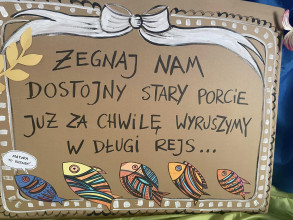 ŻEGNAJ NAM
DOSTOJNY STARY PORCIE
JUŻ ZA CHWILĘ WYRUSZYMY
W DŁUGI REJS...
MATURA
TO